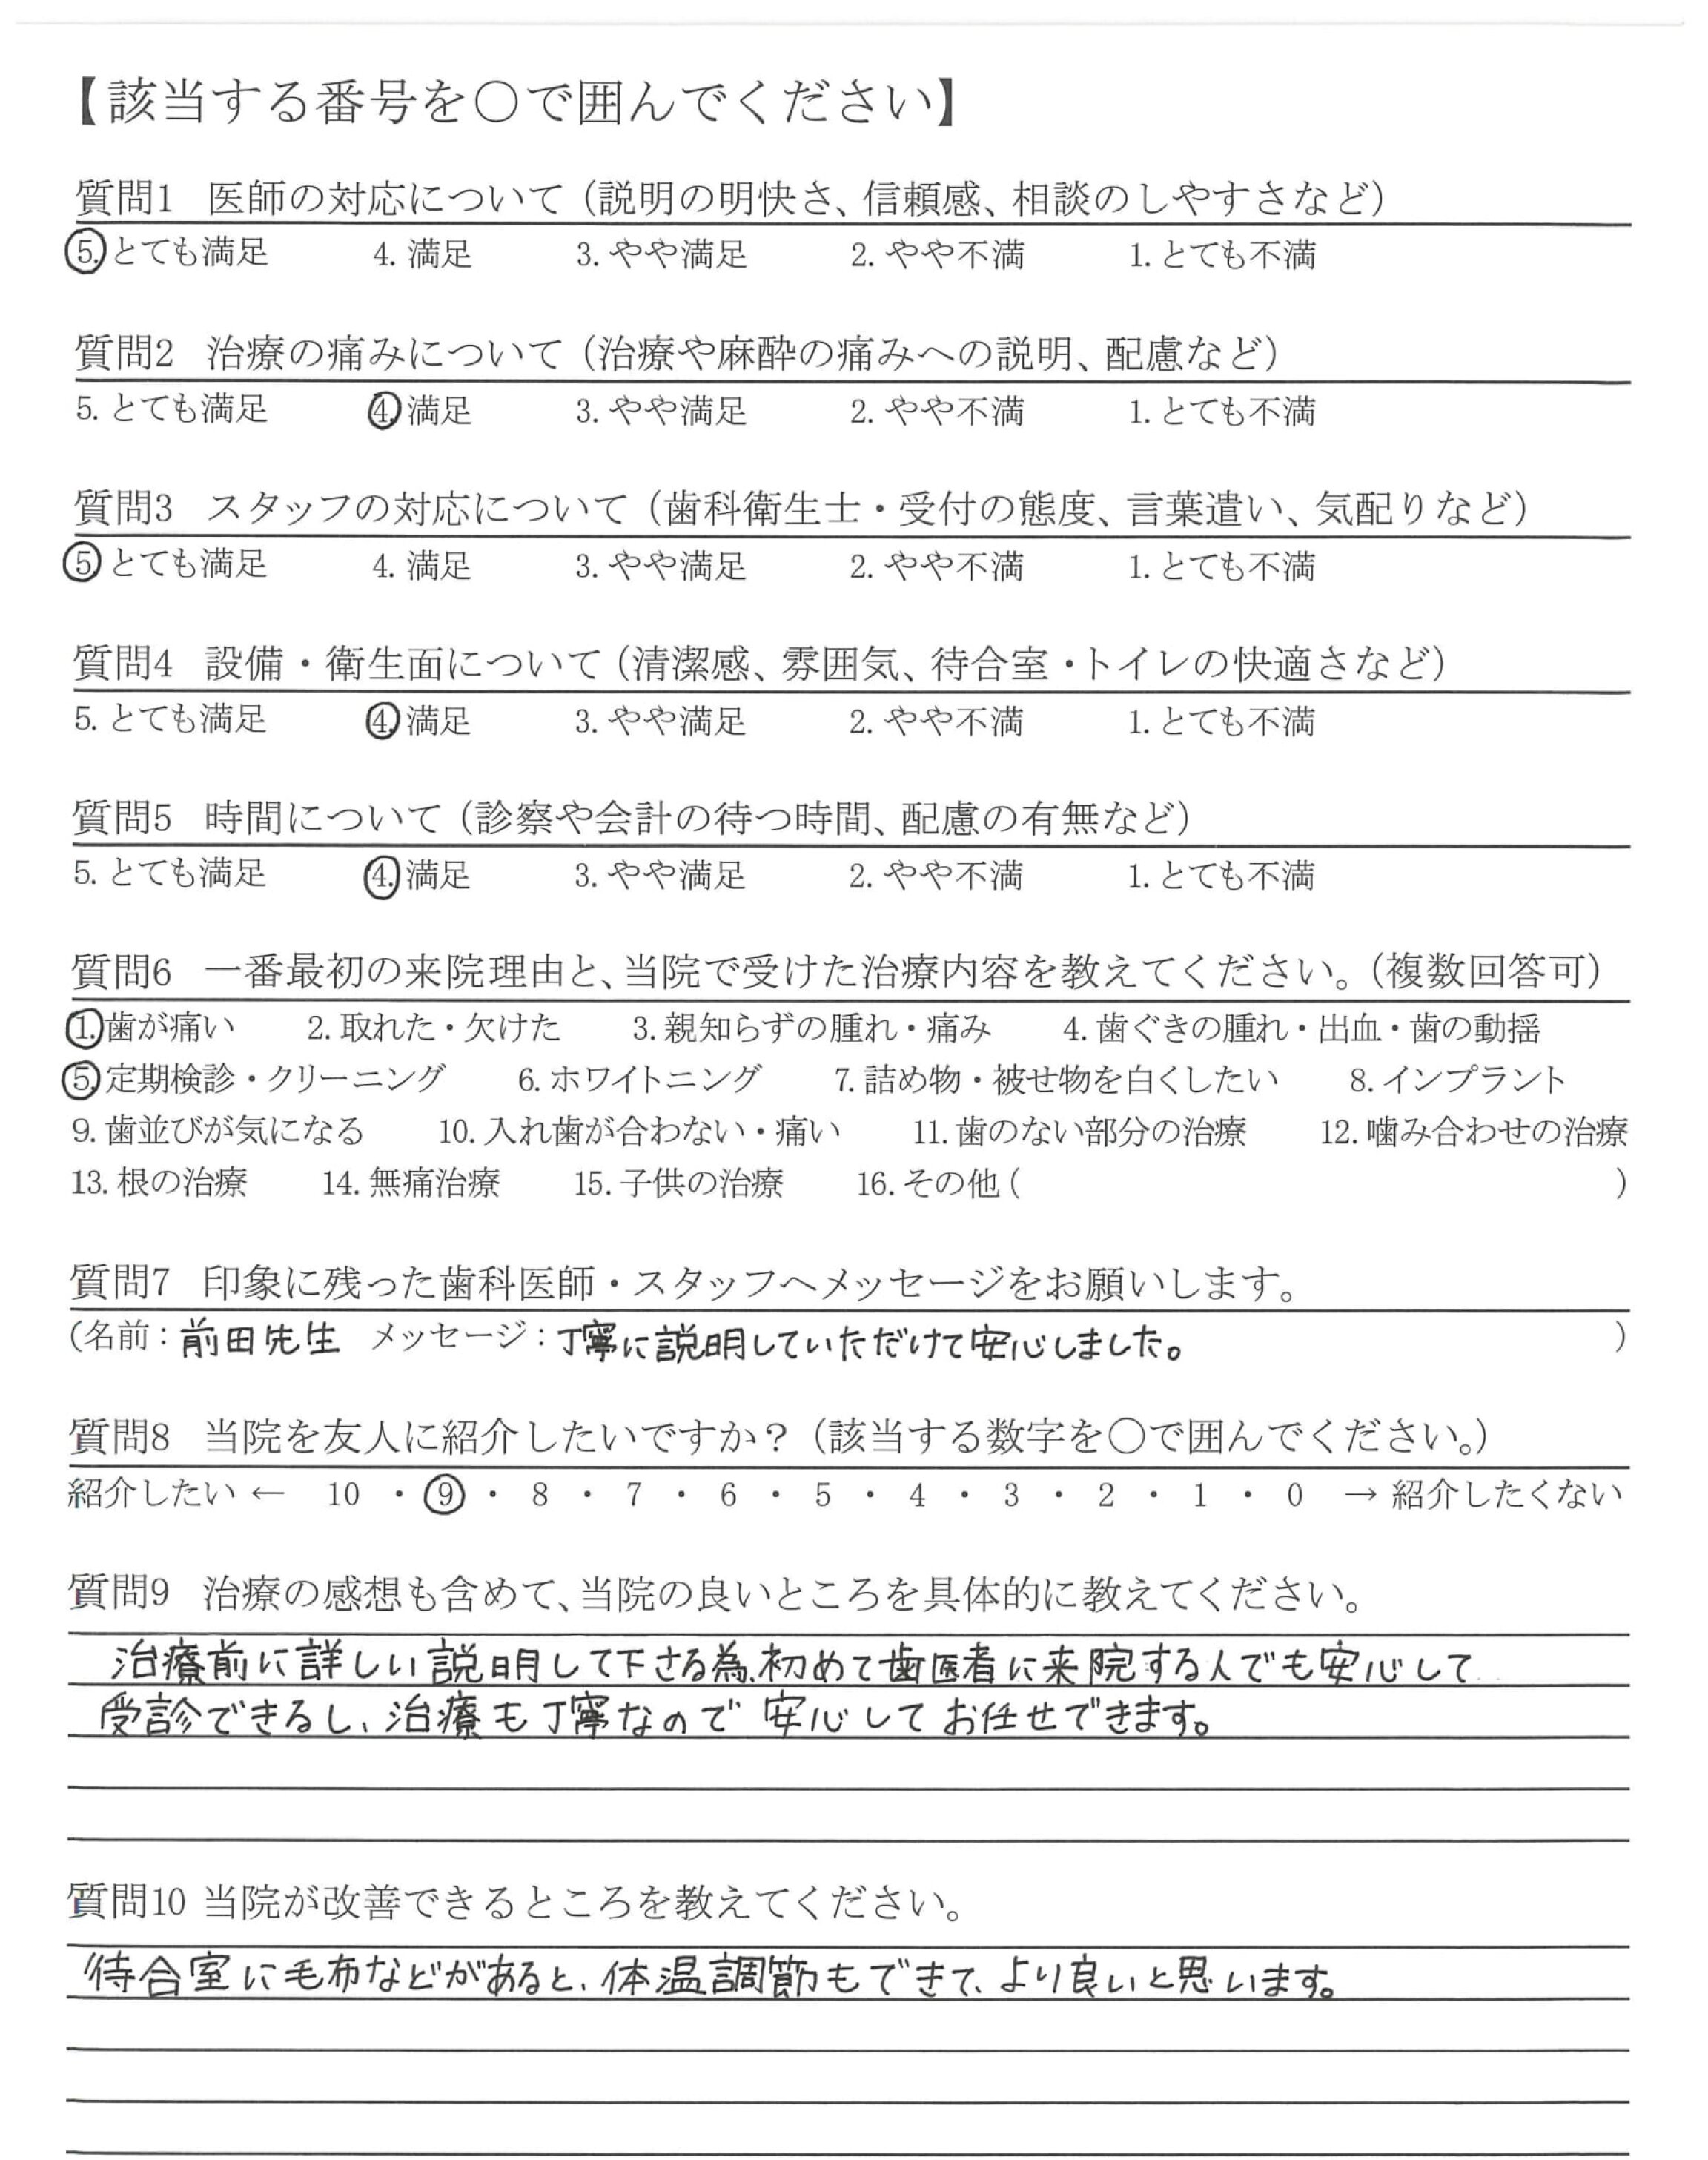 【該当する番号を〇で囲んでください】
質問1 医師の対応について（説明の明快さ、信頼感、相談のしやすさなど）
5. とても満足 4. 満足 3. やや満足 2. やや不満 1. とても不満
質問2 治療の痛みについて（治療や麻酔の痛みへの説明、配慮など）
5. とても満足 4. 満足 3. やや満足 2. やや不満 1. とても不満
質問3 スタッフの対応について（歯科衛生士・受付の態度、言葉遣い、気配りなど）
5. とても満足 4. 満足 3. やや満足 2. やや不満 1. とても不満
質問4 設備・衛生面について（清潔感、雰囲気、待合室・トイレの快適さなど）
5. とても満足 4. 満足 3. やや満足 2. やや不満 1. とても不満
質問5 時間について（診察や会計の待つ時間、配慮の有無など）
5. とても満足 4. 満足 3. やや満足 2. やや不満 1. とても不満
質問6 一番最初の来院理由と、当院で受けた治療内容を教えてください。（複数回答可）
1. 歯が痛い 2. 取れた・欠けた 3. 親知らずの腫れ・痛み 4. 歯ぐきの腫れ・出血・歯の動揺
5. 定期検診・クリーニング 6. ホワイトニング 7. 詰め物・被せ物を白くしたい 8. インプラント
9. 歯並びが気になる 10. 入れ歯が合わない・痛い 11. 歯のない部分の治療 12. 噛み合わせの治療
13. 根の治療 14. 無痛治療 15. 子供の治療 16. その他（ ）
質問7 印象に残った歯科医師・スタッフへメッセージをお願いします。
（名前：前田先生 メッセージ：丁寧に説明していただけて安心しました。 ）
質問8 当院を友人に紹介したいですか？（該当する数字を〇で囲んでください。）
紹介したい ← 10 ・ 9 ・ 8 ・ 7 ・ 6 ・ 5 ・ 4 ・ 3 ・ 2 ・ 1 ・ 0 → 紹介したくない
質問9 治療の感想も含めて、当院の良いところを具体的に教えてください。
治療前に詳しい説明して下さる為、初めて歯医者に来院する人でも安心して
受診できるし、治療も丁寧なので安心してお任せできます。
質問10 当院が改善できるところを教えてください。
待合室に毛布などがあると、体温調節もできて、より良いと思います。